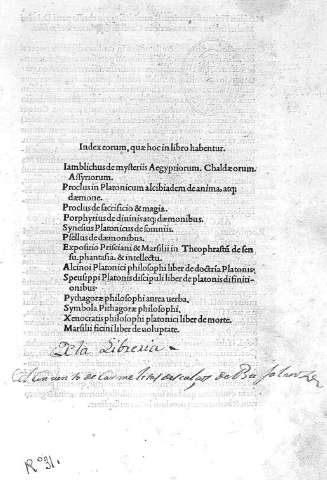 Index eorum, quæ hoc in libro habentur.
Iamblichus de mysteriis Aegyptiorum. Chaldæorum.
Assyriorum.
Proclus in Platonicum alcibiadem de anima, atq;
dæmone.
Proclus de sacrificio & magia.
Porphyrius de diuinis atq; dæmonibus.
Synesius Platonicus de somniis.
Psellus de dæmonibus.
Expositio Prisciani & Marsilii in Theophrastū de sen
su, phantasia, & intellectu.
Alcinoi Platonici philosophi liber de doctrīa Platonis,
Speusippi Platonis discipuli liber de platonis difiniti-
onibus.
Pythagoræ philosophi aurea uerba.
Symbola Pithagoræ philosophi,
Xenocratis philosophi platonici liber de morte.
Marsilii ficini liber de uoluptate.
De la Libreria
conuento de Carmelitas descalços de
R.º 31.